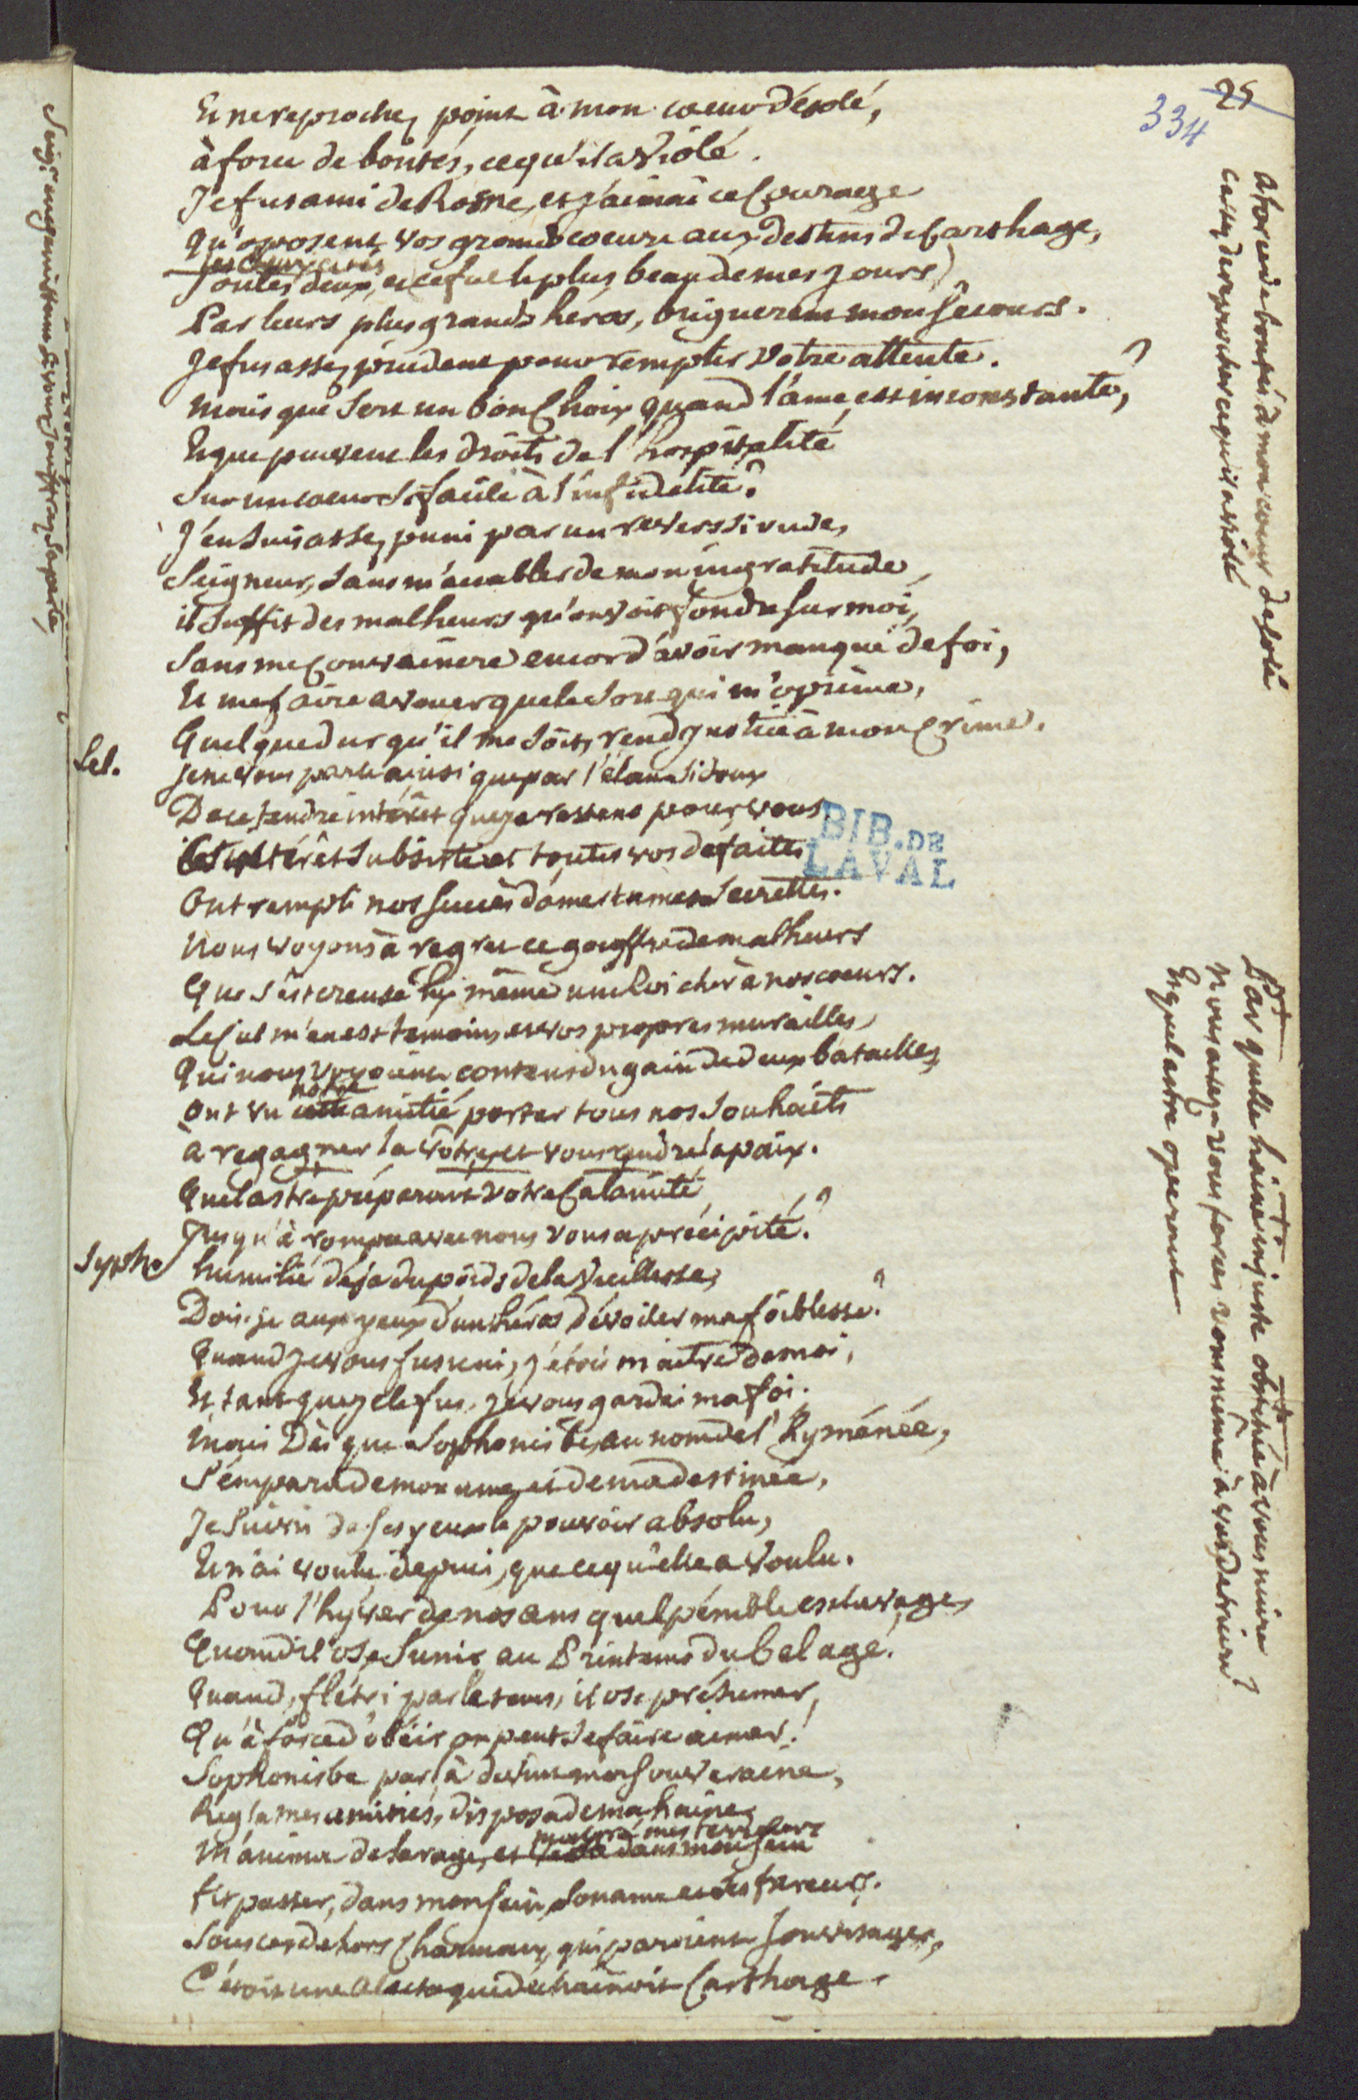 25
334
Et ne reprochez point à mon coeur désolé,
à force de bontés, ce qu'il a violé.
Je fus ami de Rome, et j'aimai ce Courage
Qu'oposent vos grands coeurs aux destins de Carthage,
les deux cités
Toutes deux, et ce fut le plus beau de mes jours,
Par leurs plus grands héros, briguerent mon Secours.
Je fus assez prudent pour remplir votre attente.
mais que sert un bon Choix quand l'âme est inconstante,?
Et que peuvent les droits de l'hospitalité
Sur un coeur si facile à l'infidelité?
J'en suis assez puni par un revers si rude,
Seigneur, sans m'accabler de mon ingratitude,
il Suffit des malheurs qu'on voit fondre sur moi,
Sans me Convaincre encor d'avoir manqué de foi,
Et me faire avouer que le Sort qui m'oprime,
Quelque dur qu'il me soit, rend justice à mon Crime.
Lel. Je ne vous parle ainsi que par l'élan si doux
De ce tendre intérêt que je ressens pour vous
Cet intérêt Subsiste et toutes vos défaites
Ont rempli nos succès d'amertumes Secrettes.
Nous voyons à regret ce gouffre de malheurs
Que s'est creusé lui même un Roi cher à nos coeurs.
Le Ciel m'en est temoin, et vos propres murailles,
Qui nous voyoient contens du gain de deux batailles,
notre
Ont vu cette amitié porter tous nos Souhaits
à regagner la vôtre, et vous rendre la paix.
Quel astre préparant votre Calamité
Jusqu'à rompre avec nous vous a précipité?
Syph. humilié déja du poids de la Vieillesse,
Dois-je aux yeux d'un héros dévoiler ma foiblesse?
Quand je vous fus uni, j'étois maitre de moi,
Et tant que je le fus, je vous gardai ma foi.
mais Dès que Sophonisbe, au nom de l'Hyménée,
S'empara de mon ame, et de ma destinée,
Je Suivis de ses yeux le pouvoir absolu,
Et n'ai voulu depuis, que ce qu'elle a Voulu.
Pour l'hyver de nos ans quel pénible esclavage,
Quand il ose s'unir au Printems du bel age!
Quand, flétri par le tems, il ose présumer,
Qu'à force d'obéir on peut se faire aimer!
Sophonisbe par là devint ma Souveraine,
Regla mes amitiés, disposa de ma haine,
malgré mes terreurs
M'anima de sa rage, et dans mon sein
fit passer, dans mon sein, son ame et ses fureurs.
Sous ces dehors Charmans, qui paroient Son visage,
C'étoit une Alecto que déchainoit Carthage.
a force de bontés à mon coeur desolé
Cessez de reprocher ce qu'il a violé
Par quelle haine injuste obstiné à vous nuire
Vous avez vous forcés vous même à vous detruire?
Et quel astre operant
BIB. DE
LAVAL